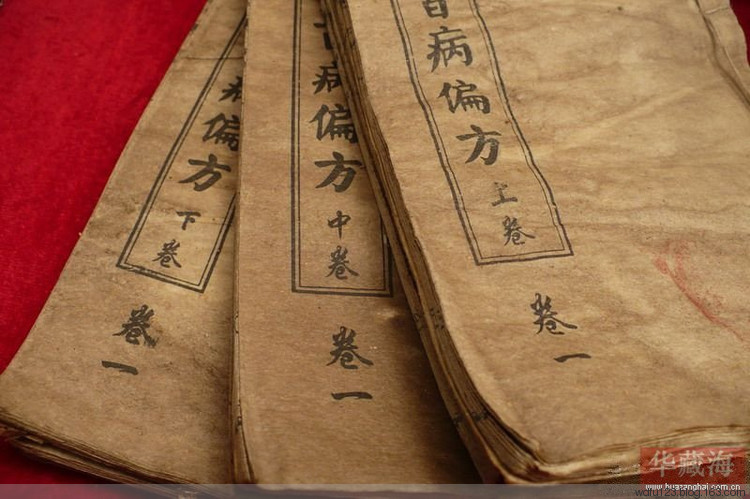 百病偏方
上卷
卷一
病偏方
中卷
卷一
病偏方
下卷
卷一
华藏海
www.huazanghai.com
www.wdfu123.blog.163.com